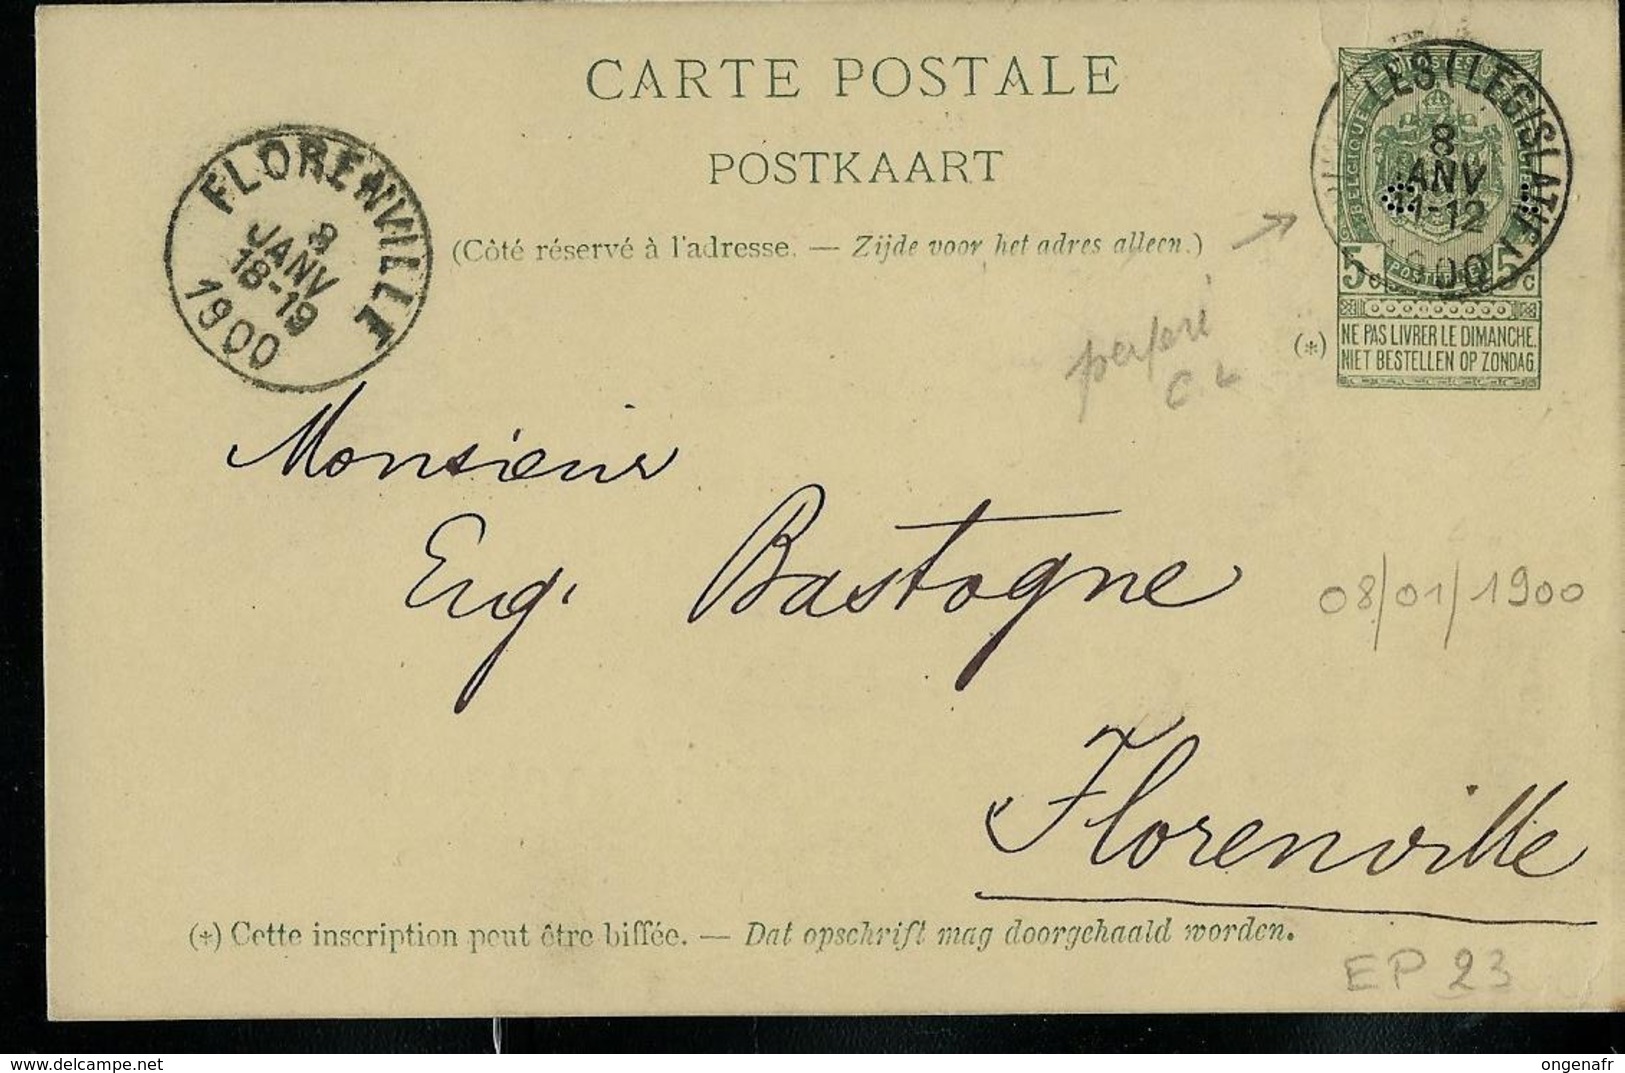 CARTE POSTALE
POSTKAART
(Côté réservé à l'adresse. — Zijde voor het adres alleen.)
FLORENVILLE
8
JANV
18-19
1900
LES (LEGISLATI
8
JANV
11-12
900
BELGIQUE
5c
5c
(*)
NE PAS LIVRER LE DIMANCHE.
NIET BESTELLEN OP ZONDAG.
perforé
C L
Monsieur
Eug. Bastogne
08/01/1900
Florenville
(*) Cette inscription peut être biffée. — Dat opschrift mag doorgehaald worden.
EP 23
delcampe.net
ongenafr